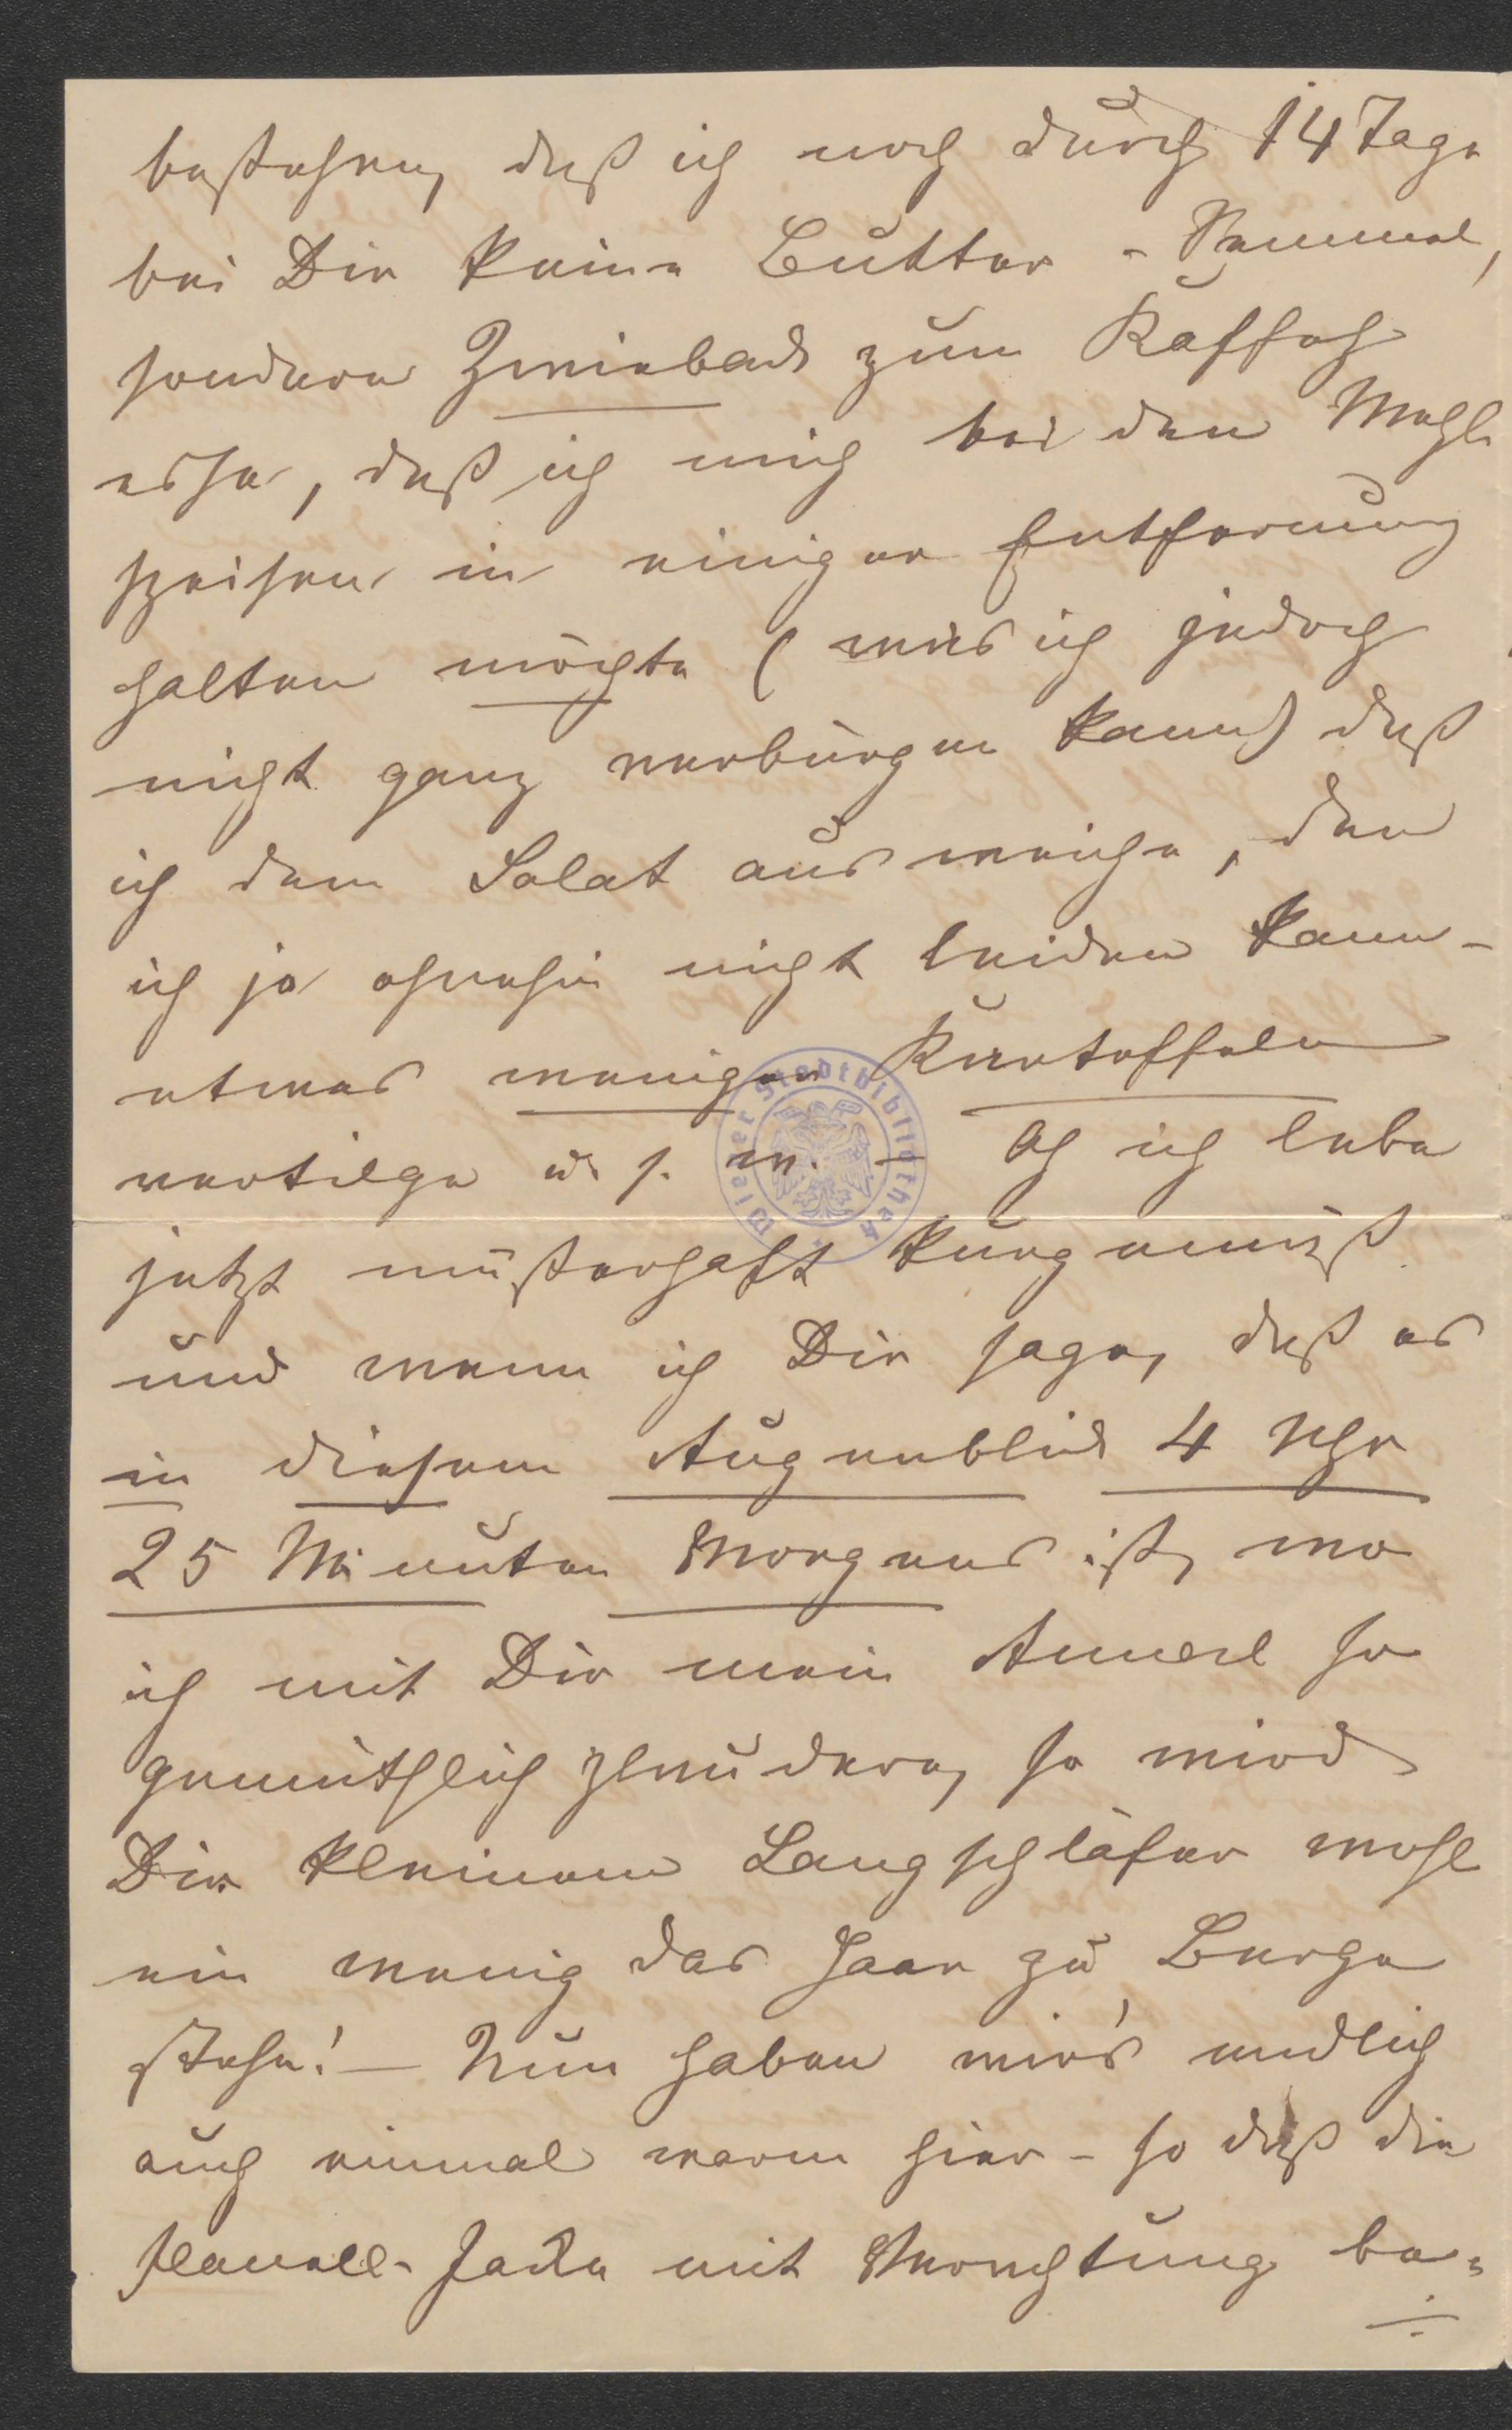 bestehen, daß ich noch durch 14 Tage
bei Dir keine Butter-Semmel,
sondern Zwieback zum Kaffeh
esse, daß ich mich bei den Mehl
speisen in einiger Entfernung
halten möchte (was ich jedoch
nicht ganz verbürgen kann) daß
ich dem Salat ausweiche, den
ich ja ohnehin nicht leiden kann -
etwas weniger Kartoffeln
vertilge u. s. w. – Oh ich lebe
jetzt musterhaft kurgemäß
und wenn ich Dir sage, daß es
in diesem Augenblick 4 Uhr
25 Minuten Morgens ist, wo
ich mit Dir mein Annerl so
gemüthlich plaudere, so wird
Dir kleinem Langschläfer wohl
ein wenig das Haar zu Berge
stehn! – Nun haben wir's endlich
auch einmal warm hier - so daß die
Flanell-Jacke mit Verachtung be-
Wiener Stadtbibliothek